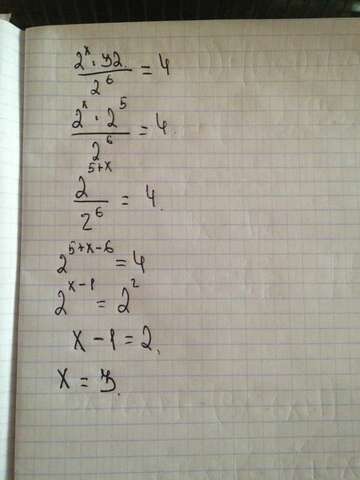 2^x · 32 / 2^6 = 4
2^x · 2^5 / 2^6 = 4.
2^{5+x} / 2^6 = 4.
2^{5+x-6} = 4
2^{x-1} = 2^2
x - 1 = 2.
x = 3.